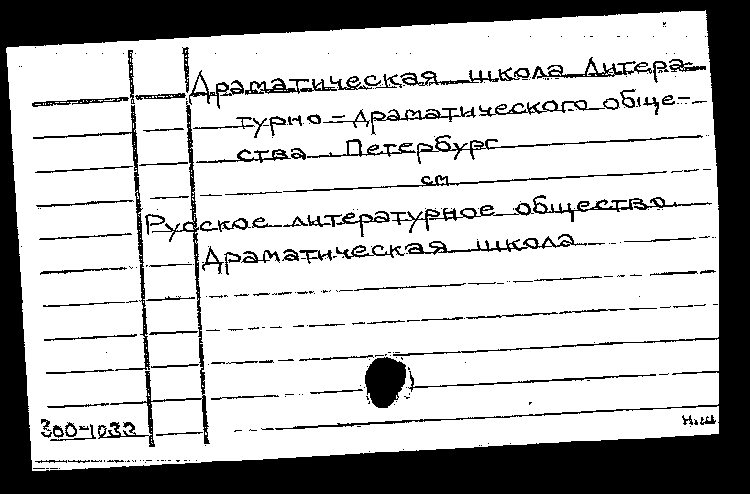 Драматическая школа Литера-
турно-драматического обще-
ства. Петербург
см
Русское литературное общество.
Драматическая школа
300-1032